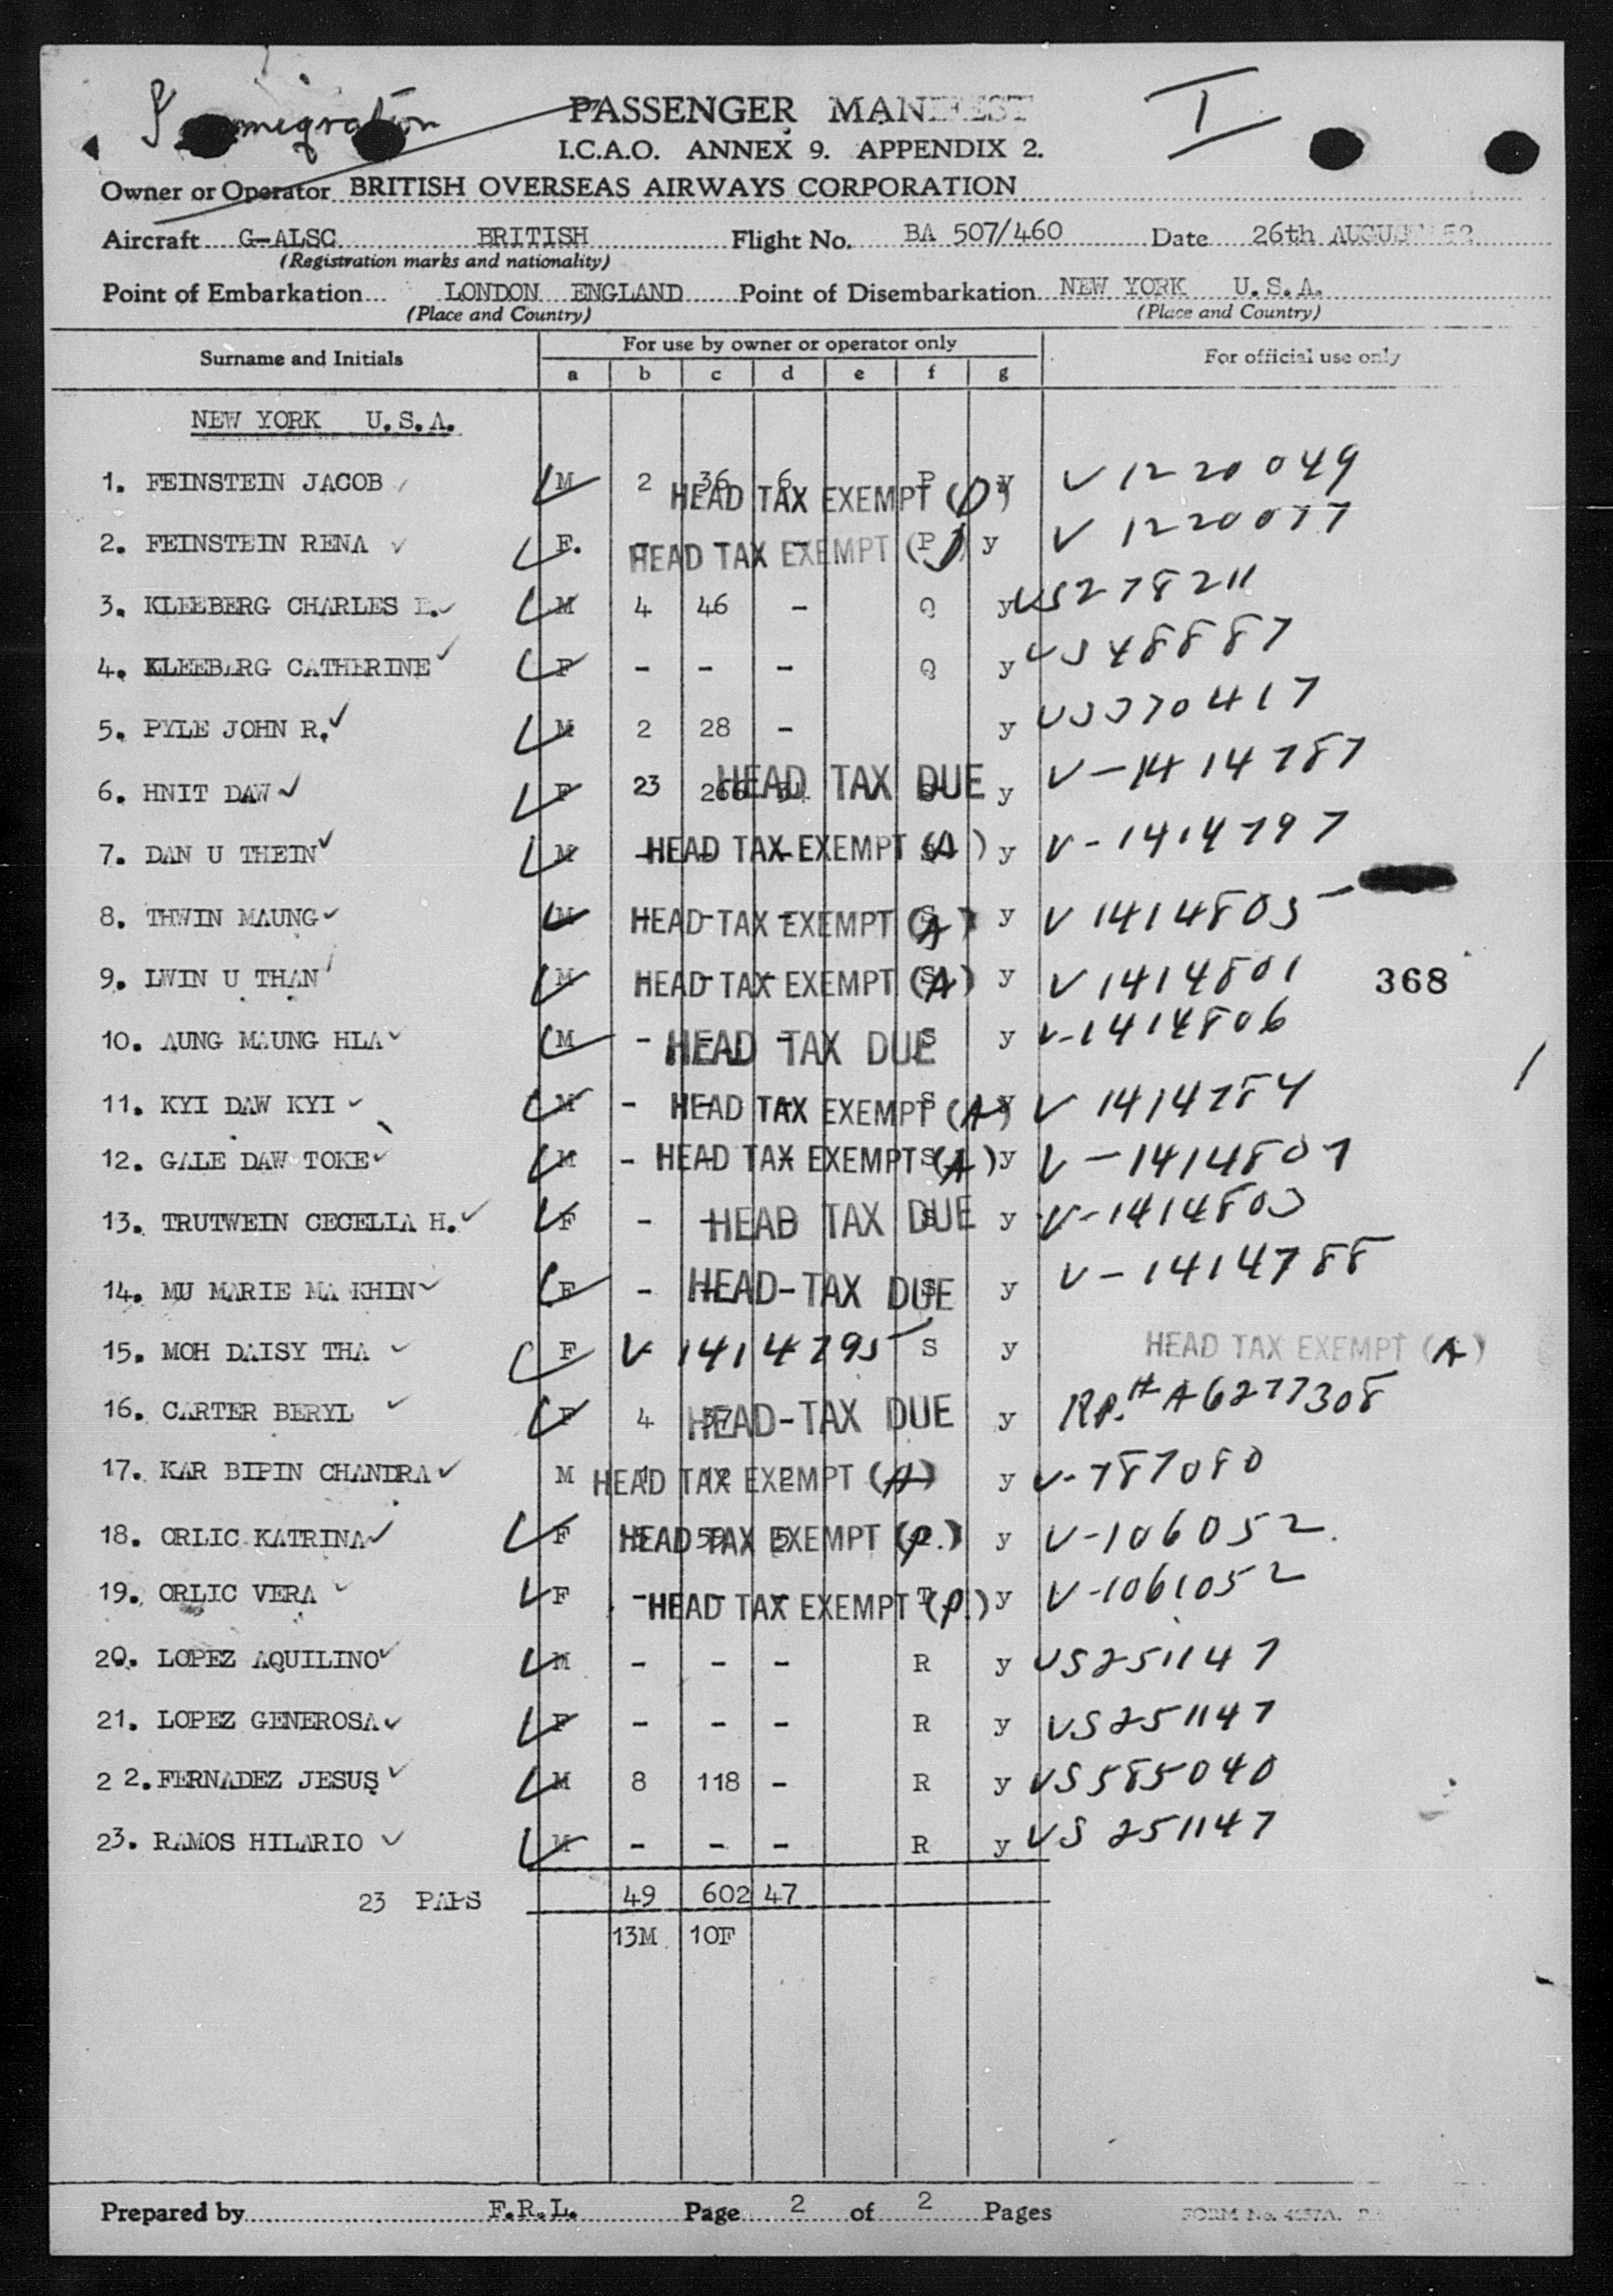 Immigration
PASSENGER MANIFEST
I
I.C.A.O. ANNEX 9. APPENDIX 2.
Owner or Operator BRITISH OVERSEAS AIRWAYS CORPORATION
Aircraft G-ALSC BRITISH Flight No. BA 507/460 Date 26th AUGUST 52
(Registration marks and nationality)
Point of Embarkation LONDON ENGLAND Point of Disembarkation NEW YORK U.S.A.
(Place and Country) (Place and Country)
Surname and Initials For use by owner or operator only For official use only
a b c d e f g
NEW YORK U.S.A.
1. FEINSTEIN JACOB M 2 36 6 P y V 1220049
HEAD TAX EXEMPT
2. FEINSTEIN RENA F. HEAD TAX EXEMPT P y V 1220077
3. KLEEBERG CHARLES E. M 4 46 - Q y US278211
4. KLEEBERG CATHERINE F - - - Q y US48887
5. PYLE JOHN R. M 2 28 - y US370417
6. HNIT DAW F 23 266 HEAD TAX DUE y V-1414787
7. DAN U THEIN M HEAD TAX EXEMPT (A) y V-1414797
8. THWIN MAUNG M HEAD TAX EXEMPT (A) S y V 1414805
9. LWIN U THAN M HEAD TAX EXEMPT (A) S y V 1414801 368
10. AUNG MAUNG HLA M - HEAD TAX DUE S y V-1414806
11. KYI DAW KYI M - HEAD TAX EXEMPT (A) S y V 1414784
12. GALE DAW TOKE M - HEAD TAX EXEMPT (A) S y V-1414807
13. TRUTWEIN CECELIA H. F - HEAD TAX DUE S y V-1414803
14. MU MARIE MA KHIN F - HEAD TAX DUE S y V-1414788
15. MOH DAISY THA F V 1414795 S y HEAD TAX EXEMPT (A)
16. CARTER BERYL F 4 57 HEAD TAX DUE y RP.# A6277308
17. KAR BIPIN CHANDRA M HEAD TAX EXEMPT (A) y V-787080
18. ORLIC KATRINA F HEAD TAX EXEMPT (P.) y V-106052
19. ORLIC VERA F - HEAD TAX EXEMPT T (P.) y V-1061052
20. LOPEZ AQUILINO M - - - R y US251147
21. LOPEZ GENEROSA F - - - R y US251147
22. FERNADEZ JESUS M 8 118 - R y US585040
23. RAMOS HILARIO M - - - R y US 251147
23 PAPS 49 602 47
13M 10F
Prepared by F.R.L. Page 2 of 2 Pages FORM No.